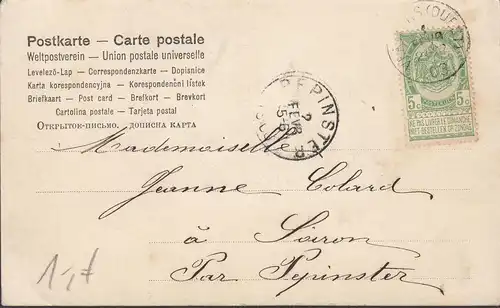 Postkarte — Carte postale
Weltpostverein — Union postale universelle
Levelező-Lap — Correspondenzkarte — Dopisnice
Karta korespondencyjna — Korespondenční lístek
Briefkaart — Post card — Brefkort — Brevkort
Cartolina postale — Tarjeta postal
Открытое-письмо, — дописна карта
PEPINSTER
2
FEVR
5-6
03
5c 5c
NE PAS LIVRER LE DIMANCHE
NIET BESTELLEN OP ZONDAG
Mademoiselle
Jeanne Colard
à Soiron
Par Pepinster